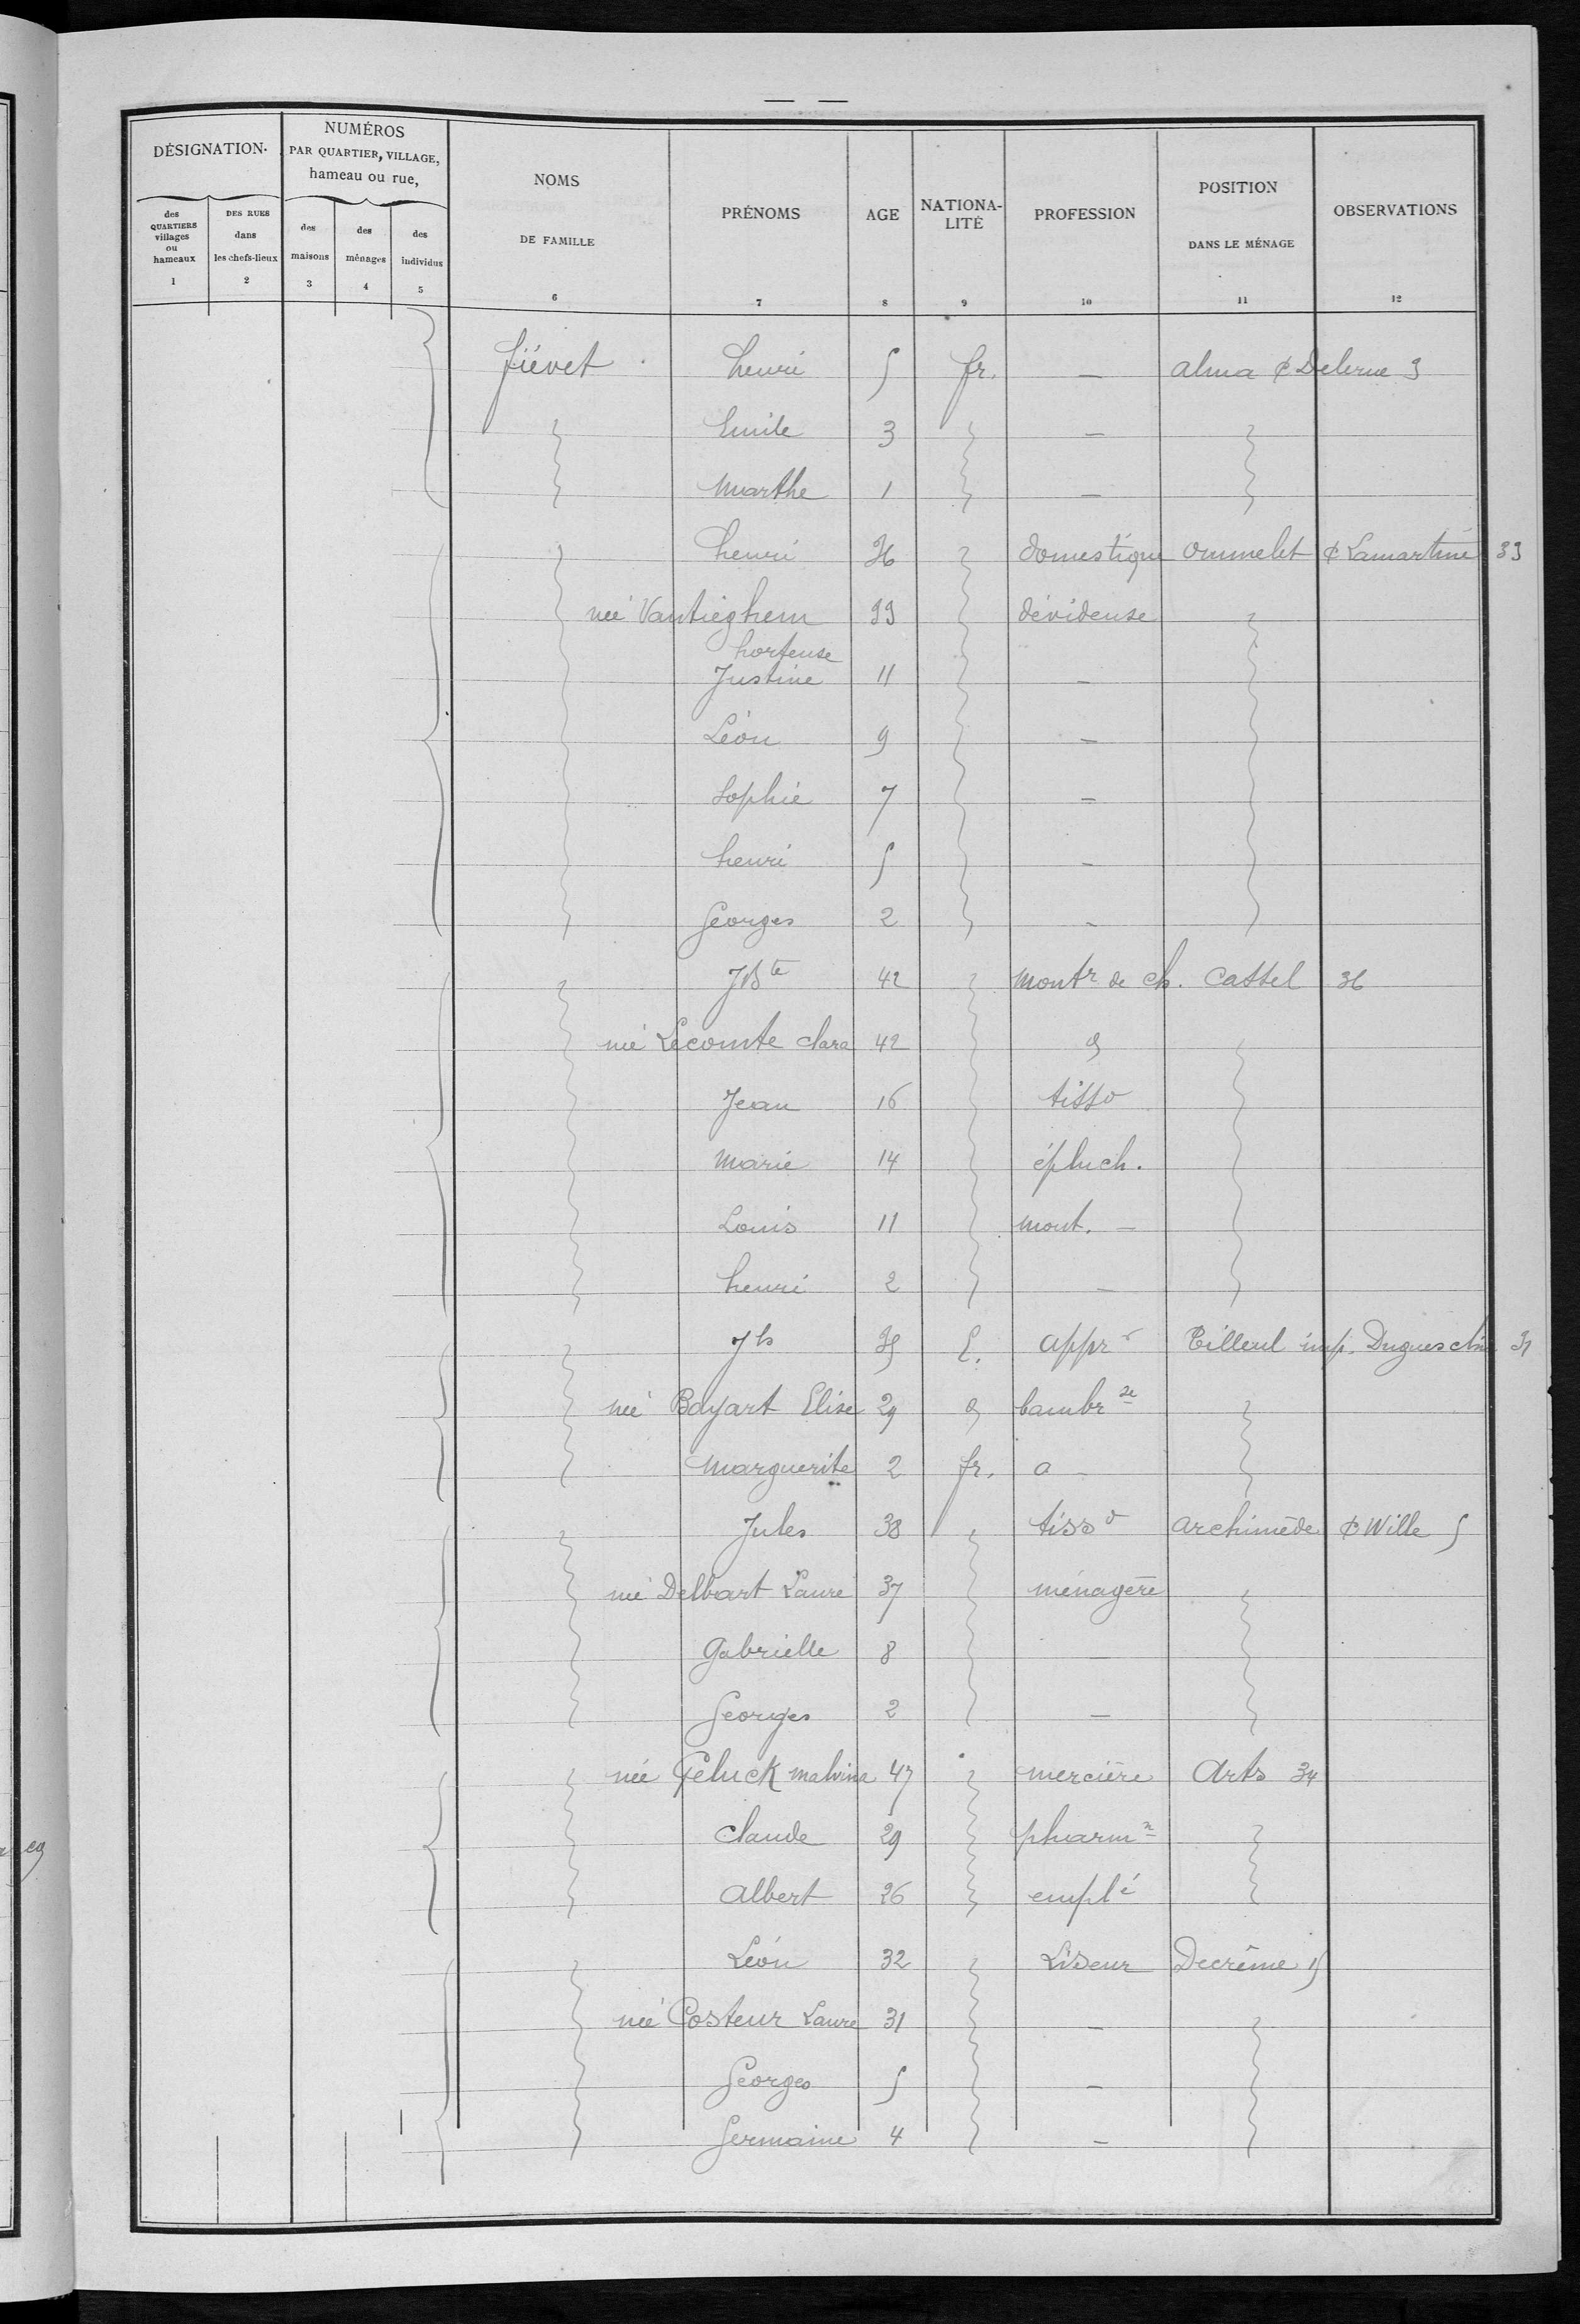 DÉSIGNATION.
NUMÉROS PAR QUARTIER, VILLAGE, hameau ou rue,
des QUARTIERS villages ou hameaux 1
DES RUES dans les chefs-lieux 2
des maisons 3
des ménages 4
des individus 5
NOMS DE FAMILLE 6
PRÉNOMS 7
AGE 8
NATIONALITÉ 9
PROFESSION 10
POSITION DANS LE MÉNAGE 11
OBSERVATIONS 12
fiévet henri 5 fr. — alma ¢ Delerue 3
Emile 3 —
Marthe 1 —
henri 36 domestique ommelet ¢ Lamartine 33
née Vantieghem hortense 33 dévideuse
Justine 11 —
Léon 9 —
Sophie 7 —
henri 5 —
Georges 2 —
JBte 42 montr de ch. Cassel 36
née Lecomte clara 42
Jean 16 tissr
Marie 14 épluch.
Louis 11 mont. —
henri 2 —
Jh 35 appr Tilleul imp. Duguesclin
née Bayart Elise 29 bambrse
Marguerite 2 fr. —
Jules 38 tissr archimède ¢ Wille 5
née Delbart Laure 37 ménagère
Gabrielle 8 —
Georges 2 —
née Geluck malvina 47 mercière Arts 34
Claude 29 pharmn
albert 26 emplé
Léon 32 Liseur Decrême 15
née Costeur Laure 31 —
Georges 5 —
Germaine 4 —